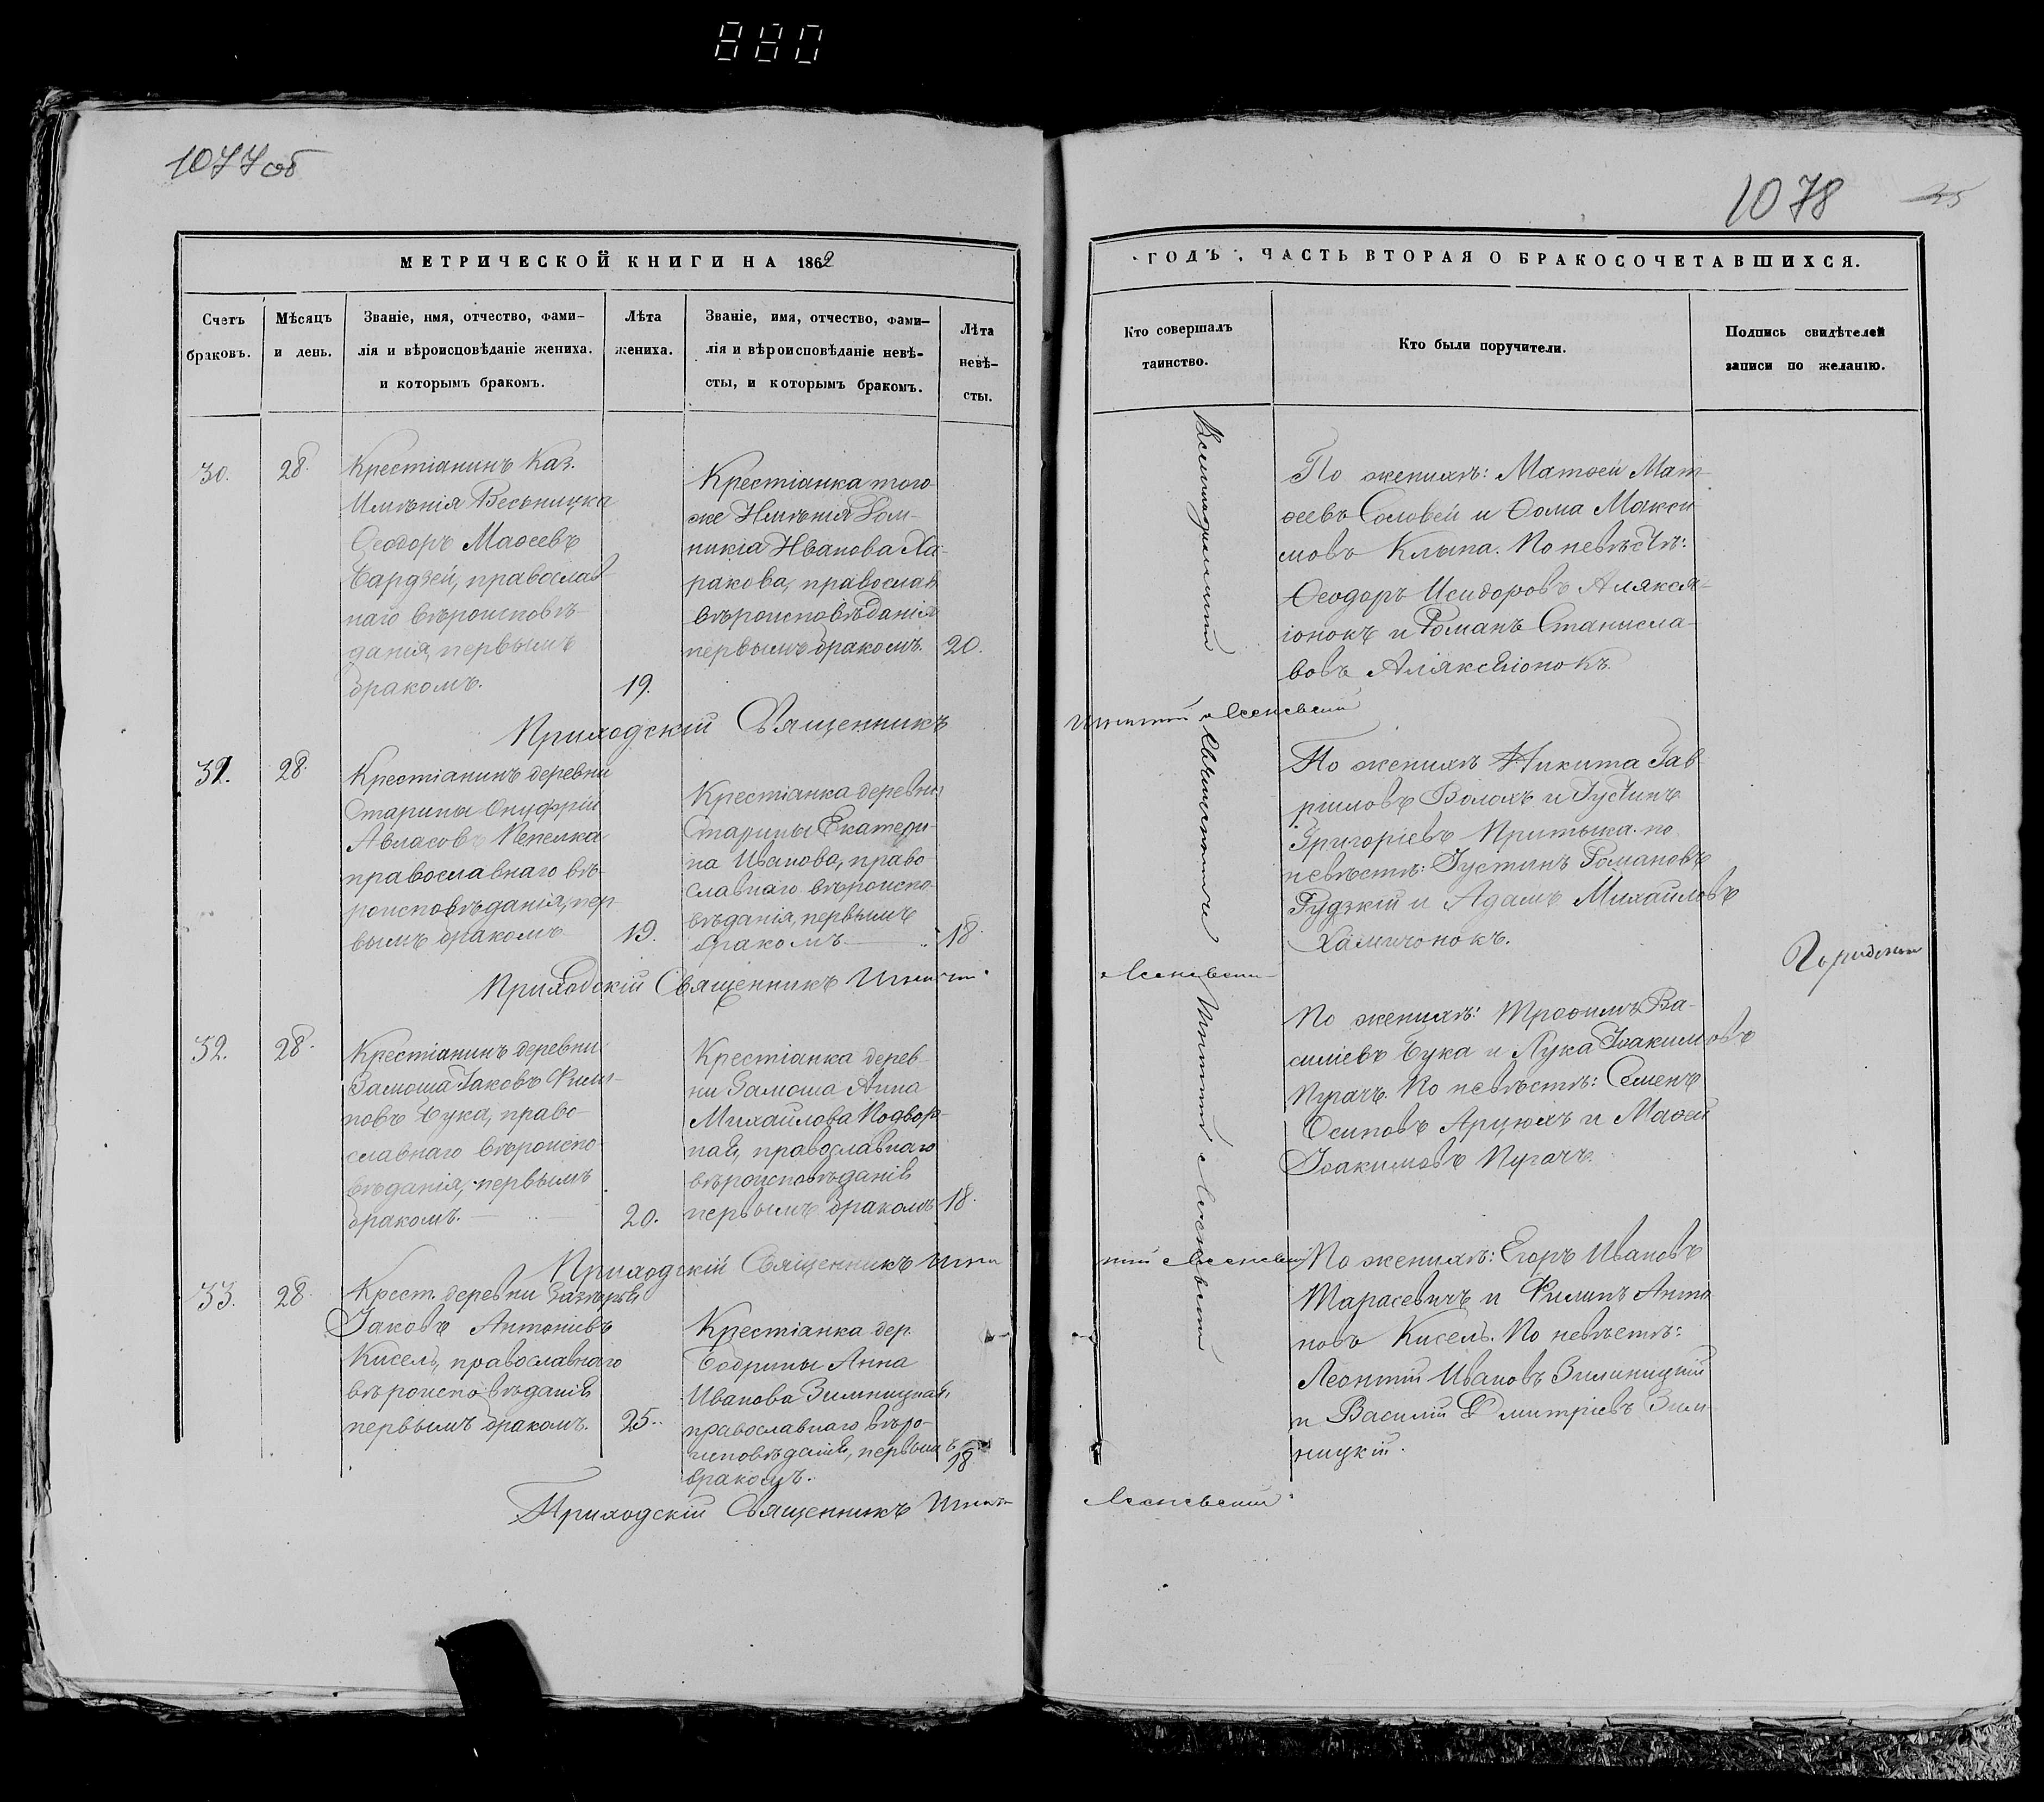 880
1077 об
1078
МЕТРИЧЕСКОЙ КНИГИ НА 1862
ГОДЪ, ЧАСТЬ ВТОРАЯ О БРАКОСОЧЕТАВШИХСЯ.
Счетъ браковъ.
Мѣсяцъ и день.
Званіе, имя, отчество, фами-
лія и вѣроисповѣданіе жениха.
и которымъ бракомъ.
Лѣта жениха.
Званіе, имя, отчество, фами-
лія и вѣроисповѣданіе невѣ-
сты, и которымъ бракомъ.
Лѣта невѣ-
сты.
Кто совершалъ
таинство.
Кто были поручители.
Подпись свидѣтелей
записи по желанію.
30.
28.
Крестіанинъ Каз.
Имѣнія Весьницка
Ѳеодоръ Маѳеевъ
Бардзей, православ
наго вѣроисповѣ-
данія, первымъ
бракомъ.
19.
Крестіанка того
же Имѣнія Дом-
никіа Иванова Ха-
ракова, православ
вѣроисповѣданія
первымъ бракомъ.
20.
По женихѣ: Матѳей Мат-
ѳеевъ Соловей и Ѳома Макси
мовъ Клыпа. По невѣстѣ:
Ѳеодоръ Исидоровъ Алякся-
іонокъ и Романъ Станисла-
вовъ Аляксѣіонокъ.
Приходскій Священникъ
31.
28.
Крестіанинъ деревни
Старины Онуфрій
Авласовъ Пепелка
православнаго вѣ-
роисповѣданія, пер-
вымъ бракомъ
19.
Крестіанка деревни
Старины Екатери-
на Иванова, право-
славнаго вѣроиспо-
вѣданія, первымъ
бракомъ
18.
По женихѣ Никита Гав
ріиловъ Волохъ и Іустинъ
Григоріевъ Притыка. по
невѣстѣ: Іустинъ Романовъ
Рудзкій и Адамъ Михаиловъ
Хамичонокъ.
Приходскій Священникъ
32.
28.
Крестіанинъ деревни
Замоша Іаковъ Филип-
повъ Бука, право-
славнаго вѣроиспо-
вѣданія, первымъ
бракомъ.
20.
Крестіанка дерев-
ни Замоша Анна
Михаилова Подвор-
ная, православнаго
вѣроисповѣданія
первымъ бракомъ
18.
По женихѣ: Трофимъ Ва-
силіевъ Бука и Лука Іоакимовъ
Пугачъ. По невѣстѣ: Семенъ
Осиповъ Арцюхъ и Маѳей
Іоакимовъ Пугачъ.
Приходскій Священникъ
33.
28.
Крест. деревни
Іаковъ Антоніевъ
Кисель, православнаго
вѣроисповѣданія
первымъ бракомъ.
25.
Крестіанка дер.
Бобрины Анна
Иванова Зимницкая,
православнаго вѣро-
исповѣданія, первымъ
бракомъ.
18
По женихѣ: Егоръ Ивановъ
Тарасевичъ и Филипъ Анто
новъ Кисель. По невѣстѣ:
Леонтій Ивановъ Зимницкій
и Василій Дмитріевъ Зим-
ницкій.
Приходскій Священникъ